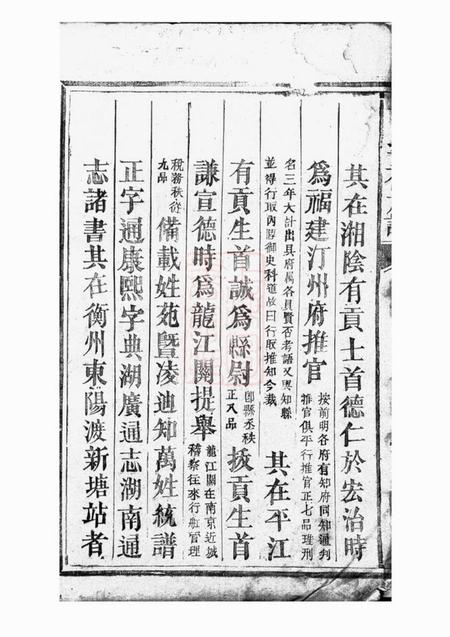 其在湘陰有貢士首德仁於宏治時
爲福建汀州府推官按前明各府有知府同知通判推官俱平行推官正七品理刑
名三年大計出具府屬各員賢否考語又與知縣並得行取內陞御史科道故曰行取推知今裁其在平江
有貢生首誠爲縣尉卽縣丞秩正八品拔貢生首
謙宣德時爲龍江關提舉龍江關在南京近城稽察往來行船官理
稅務秩從九品備載姓苑暨凌迪知萬姓統譜
正字通康熙字典湖廣通志湖南通
志諸書其在衡州東陽渡新塘站者